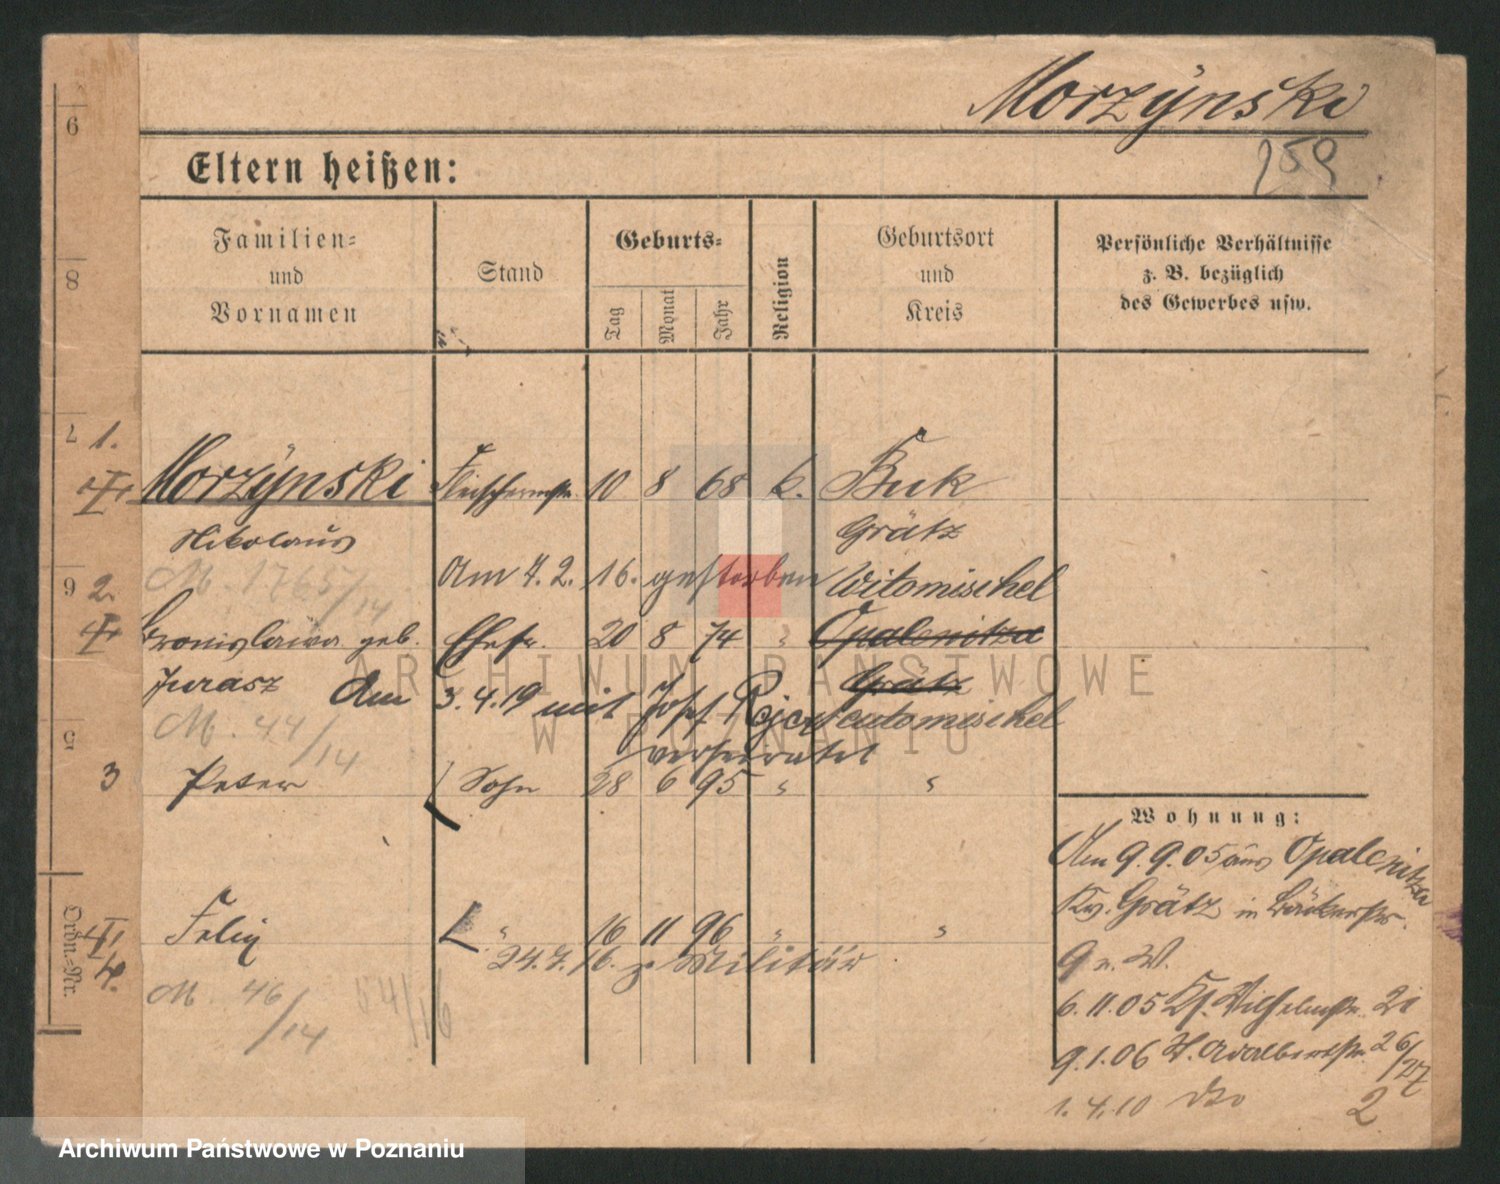 Morzÿnski
259
Eltern heißen:
Familien=
und
Vornamen
Stand
Geburts=
Tag
Monat
Jahr
Religion
Geburtsort
und
Kreis
Persönliche Verhältnisse
z. B. bezüglich
des Gewerbes usw.
9
8
7
6
5
Ordn.=Nr.
1.
Morzÿnski Fleischermstr. 10 8 68 k. Buk
Nikolaus Grätz
M. 1765/14
Am 7.2.16. gestorben Witomischel
2.
Bronislawa geb. Ehefr. 20 8 74 " Opalenitza
Jurasz Grätz
Am 3.4.19 mit Josef
verheiratet
M. 44/14
3 Peter Sohn 28 6 95 " "
4. Felix " 16 11 96 " "
24.7.16. z. Militär
M. 46/14
54/16
Wohnung:
Am 9.9.05 aus Opalenitza
Kr. Grätz in Bäckerstr.
9 n. W.
6.11.05 Kl. Wilhelmstr.
9.1.06 St. Adalbertstr. 26/27
1.4.10 dto 2
ARCHIWUM PAŃSTWOWE
W POZNANIU
Archiwum Państwowe w Poznaniu